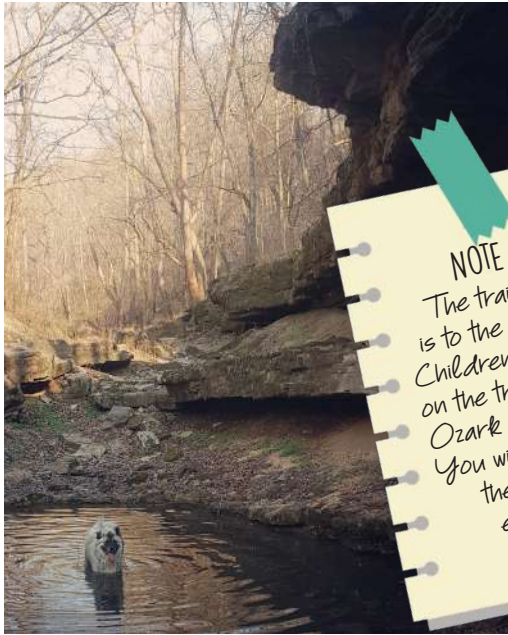 NOTE
The trai
is to the
Children
on the tr
Ozark
You wi
the
e